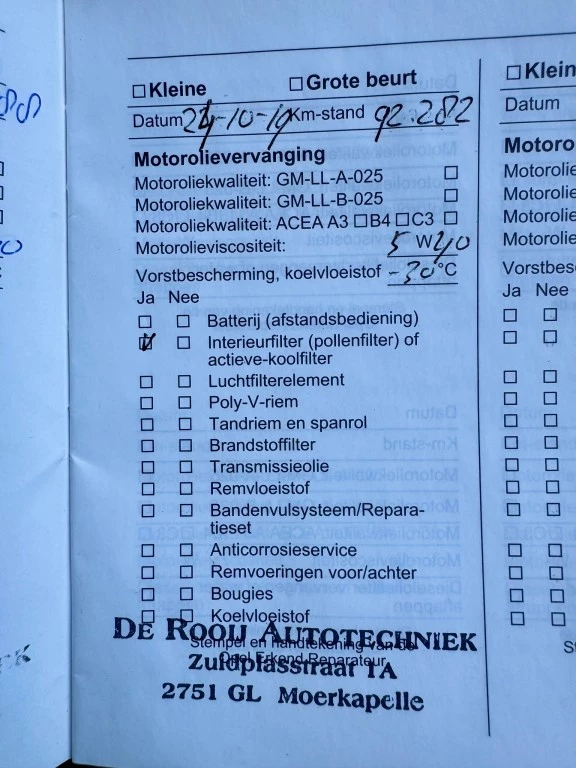 ☐ Kleine ☐ Grote beurt
Datum 24-10-19 Km-stand 92.282
Motorolievervanging
Motoroliekwaliteit: GM-LL-A-025 ☐
Motoroliekwaliteit: GM-LL-B-025 ☐
Motoroliekwaliteit: ACEA A3 ☐B4 ☐C3 ☐
Motorolieviscositeit: 5 W 40
Vorstbescherming, koelvloeistof -30 °C
Ja Nee
☐ ☐ Batterij (afstandsbediening)
☑ ☐ Interieurfilter (pollenfilter) of
actieve-koolfilter
☐ ☐ Luchtfilterelement
☐ ☐ Poly-V-riem
☐ ☐ Tandriem en spanrol
☐ ☐ Brandstoffilter
☐ ☐ Transmissieolie
☐ ☐ Remvloeistof
☐ ☐ Bandenvulsysteem/Repara-
tieset
☐ ☐ Anticorrosieservice
☐ ☐ Remvoeringen voor/achter
☐ ☐ Bougies
☐ ☐ Koelvloeistof
DE ROOIJ AUTOTECHNIEK
Stempel en handtekening van de
Opel Erkend Reparateur
Zuidplasstraat 1A
2751 GL Moerkapelle
☐ Klein
Datum
Motoro
Motorolie
Motorolie
Motorolie
Motorolie
Vorstbes
Ja Nee